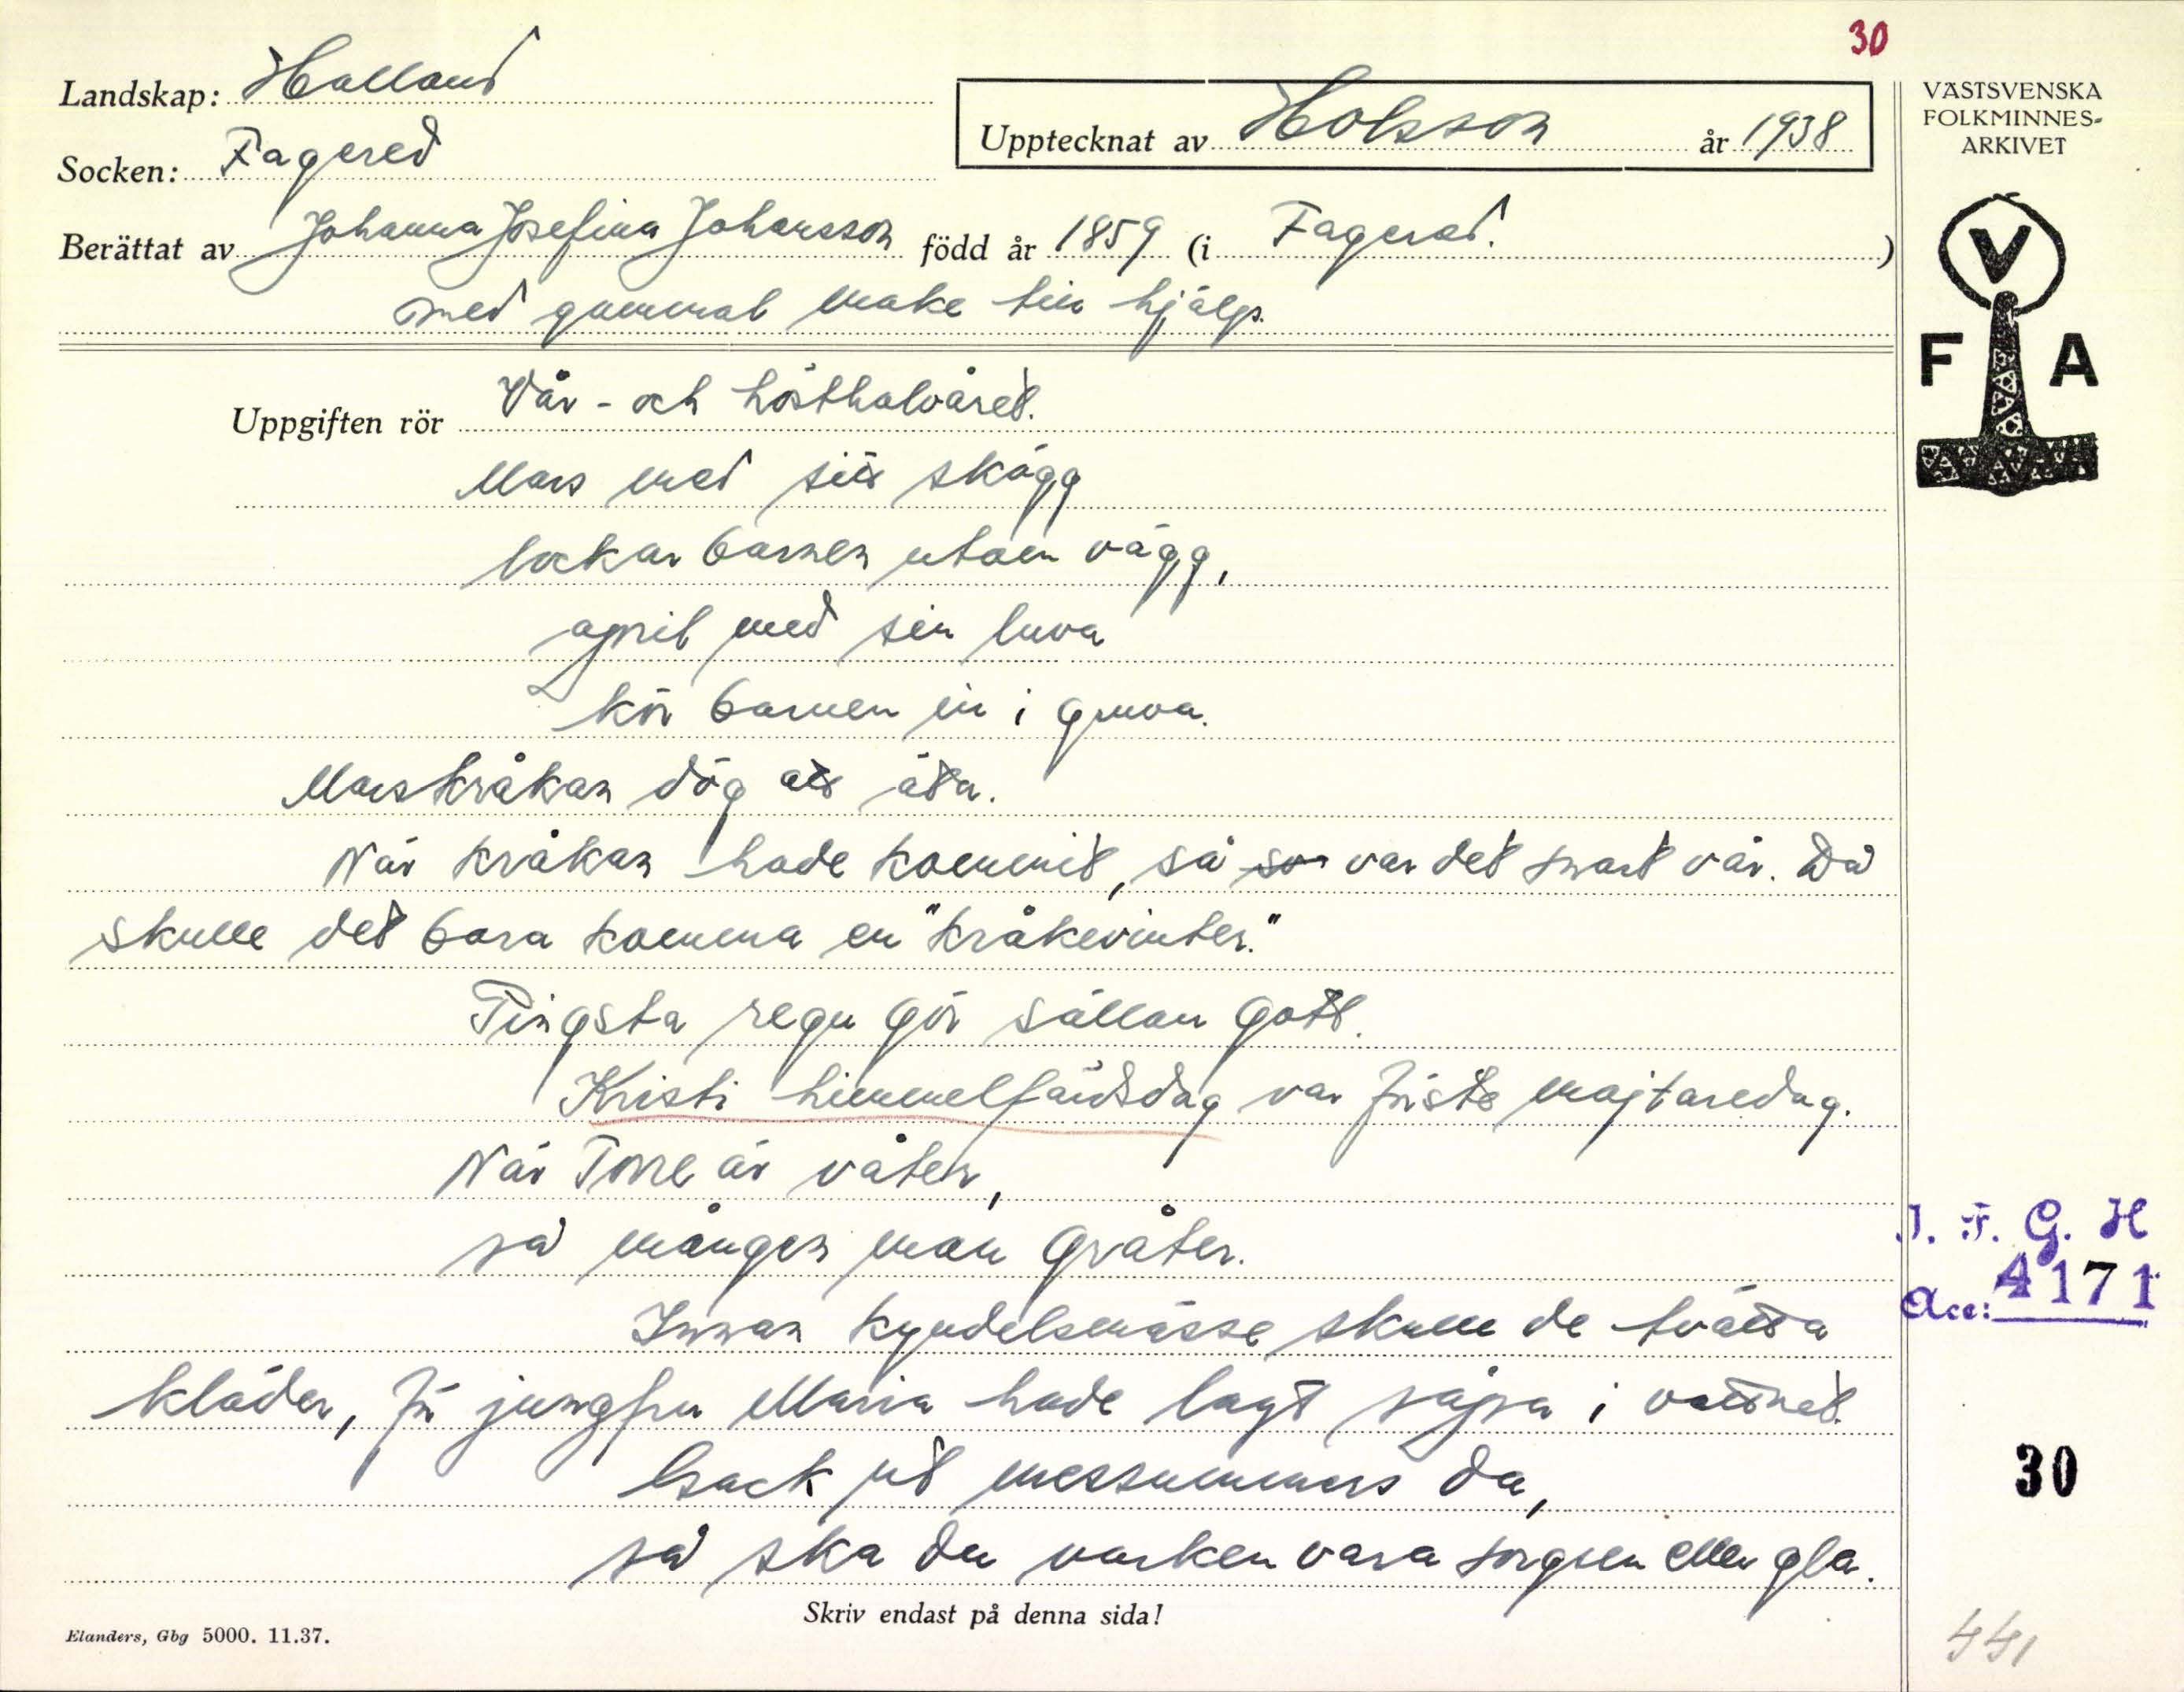 30
Landskap: Halland
Socken: Fagered
Upptecknat av Holsson år 1938
Berättat av Johanna Josefina Johansson född år 1859 (i Fagered.)
med gammal make till hjälp.
VÄSTSVENSKA
FOLKMINNES-
ARKIVET
V
F A
Uppgiften rör Vår- och hösthalvåret.
Mars med sitt skägg
lockar barnen utom vägg,
april med sin luva
kör barnen in i gruva.
Marskråkan dög att äta.
När kråkan hade kommit, så var det snart vår. Då
skulle det bara komma en "kråkevinter."
Pingsta regn gör sällan gott.
Kristi himmelfärdsdag var första majtaredag.
När Torre är våter,
så mången man gråter.
Innan kyndelsmässe skulle de tvätta
kläder, för jungfru Maria hade lagt såpa i vattnet.
Isack på messummars da,
så ska du varken vara sorgsen eller gla.
Skriv endast på denna sida!
Elanders, Gbg 5000. 11.37.
I. F. G. H
Acc: 4171
30
441